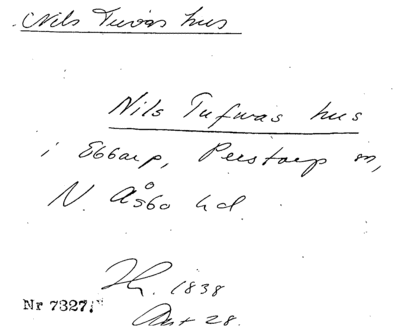 Nils Tuvas hus
Nils Tufwas hus
i Ebbarp, Perstorp sn,
N. Åsbo hd.
1838
Nr 7327.
28.